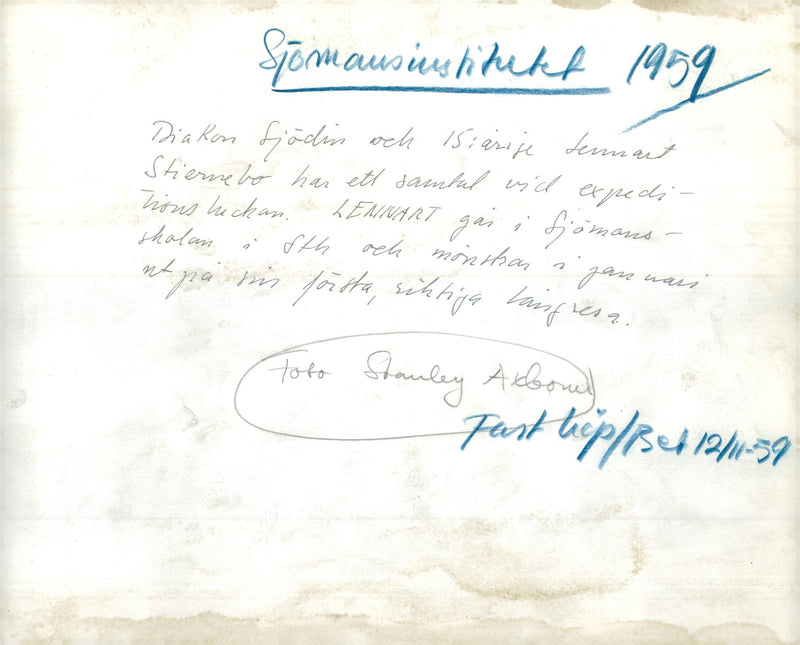 Sjömansinstitutet 1959
Diakon Sjödin och 15:årige Lennart
Stiernebo har ett samtal vid expedi-
tionsluckan. LENNART går i Sjömans-
skolan i Sth och mönstrar i januari
ut på sin första, riktiga långresa.
Foto Stanley
Fast köp/Bet 12/11-59